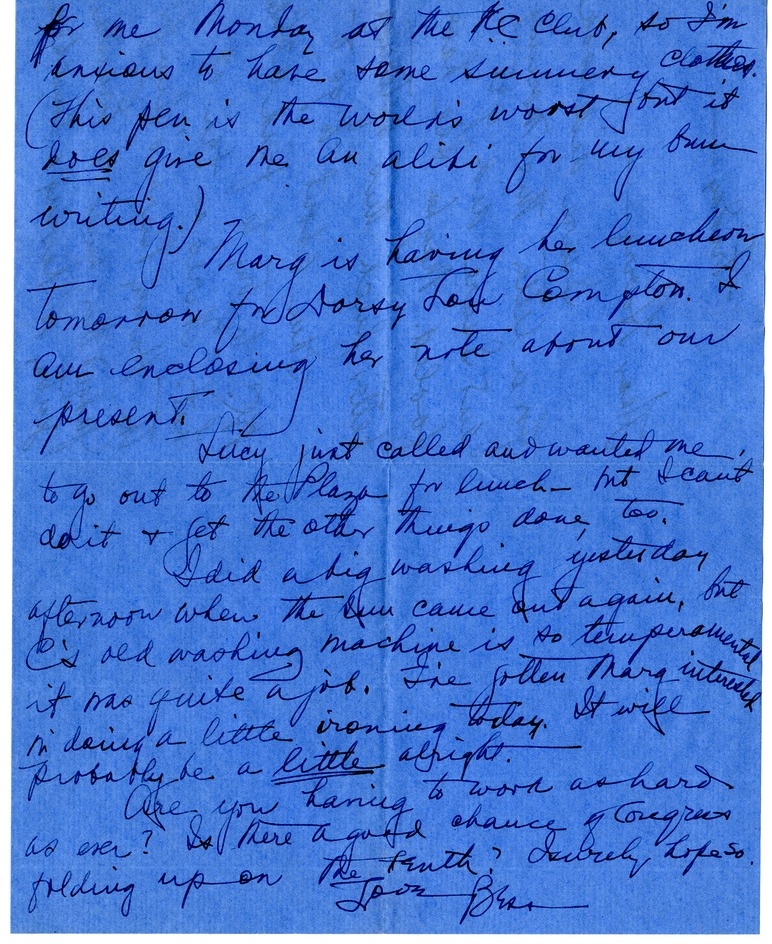 for me Monday at the KC Club, so I'm
anxious to have some summery clothes.
(This pen is the world's worst but it
does give me an alibi for my bum
writing.)
Marg is having her luncheon
tomorrow for Dorsy Lou Compton. I
am enclosing her note about our
present.
Lucy just called and wanted me
to go out to the Plaza for lunch – but I can't
do it & get the other things done, too.
I did a big washing yesterday
afternoon when the sun came out again, but
C's old washing machine is so temperamental
it was quite a job. I've gotten Marg interested
in doing a little ironing today. It will
probably be a little alright.
Are you having to work as hard
as ever? Is there a good chance of Congress
folding up on the tenth? I surely hope so.
Love Bess